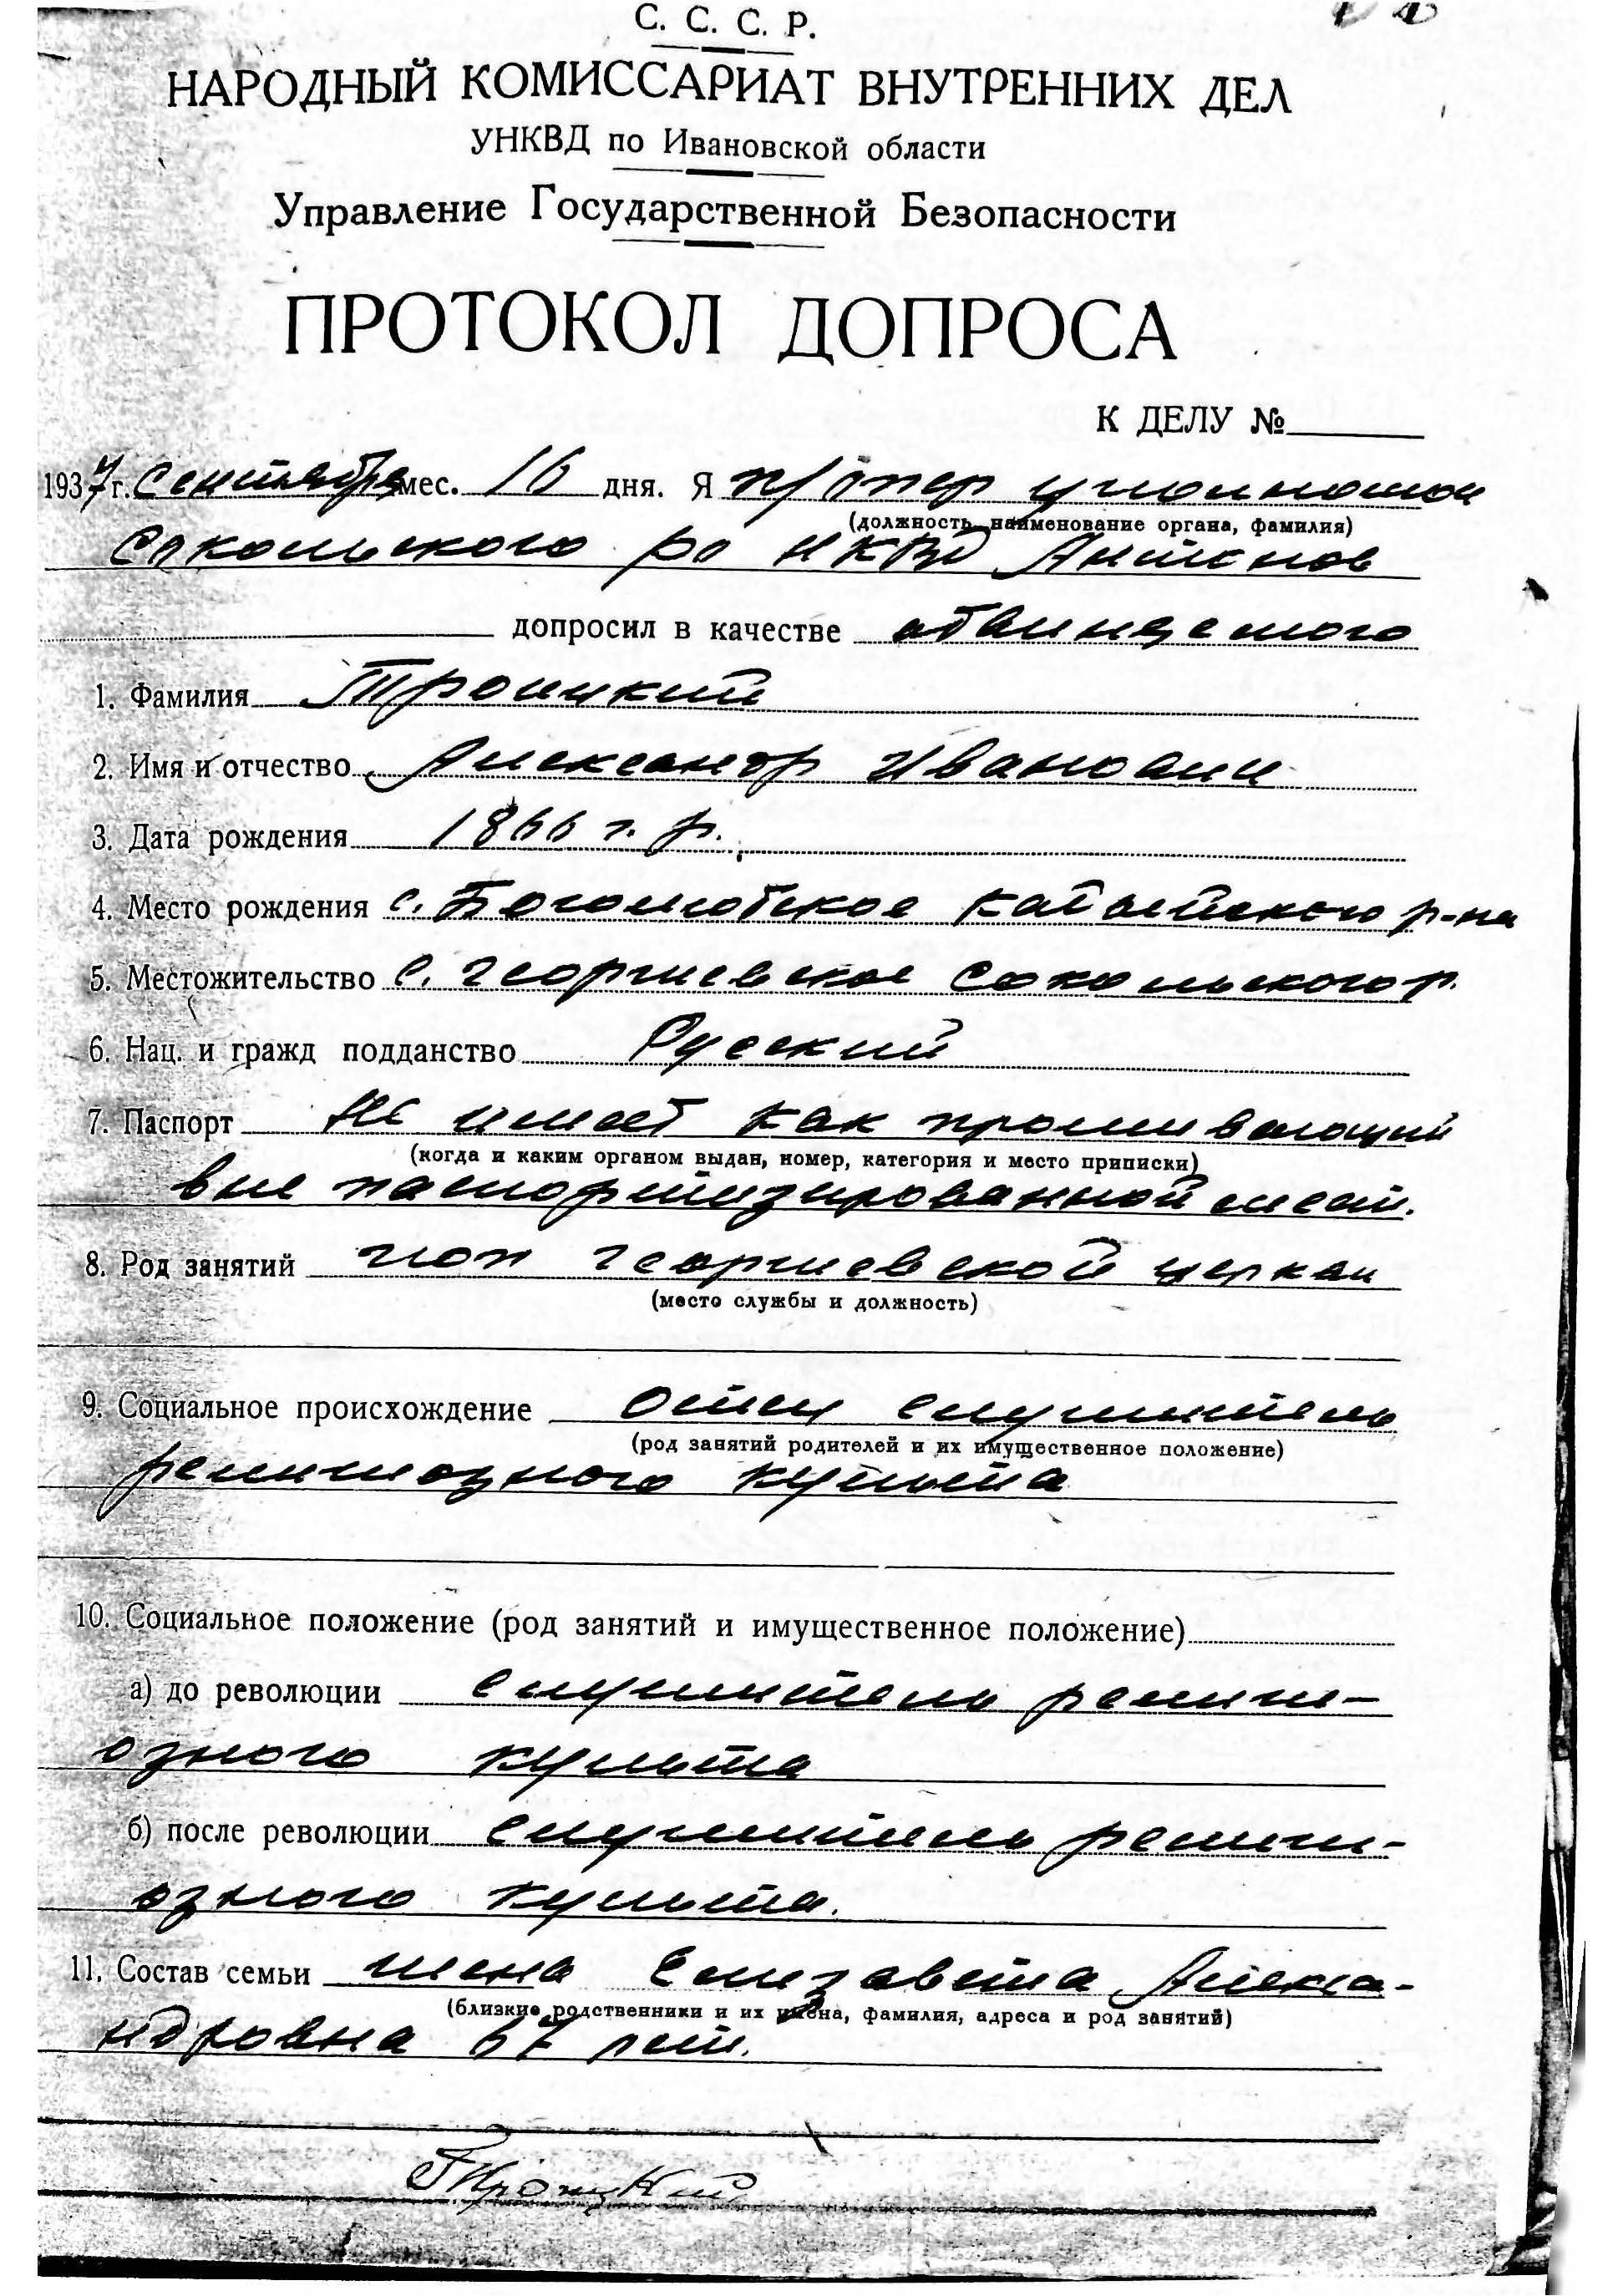 С. С. С. Р.
НАРОДНЫЙ КОМИССАРИАТ ВНУТРЕННИХ ДЕЛ
УНКВД по Ивановской области
Управление Государственной Безопасности
ПРОТОКОЛ ДОПРОСА
К ДЕЛУ №
1937 г. Сентября мес. 16 дня. Я п/опер уполномоч
(должность, наименование органа, фамилия)
Сокольского ро НКВД
допросил в качестве обвиняемого
1. Фамилия Троицкий
2. Имя и отчество Александр Иванович
3. Дата рождения 1866 г. р.
4. Место рождения с. Боголюбское Кадыйского р-на
5. Местожительство с. Георгиевское Сокольского р.
6. Нац. и гражд подданство Русский
7. Паспорт Не имеет как проживающий
(когда и каким органом выдан, номер, категория и место приписки)
вне паспортизированной мест.
8. Род занятий поп Георгиевской церкви
(место службы и должность)
9. Социальное происхождение Отец служитель
(род занятий родителей и их имущественное положение)
религиозного культа
10. Социальное положение (род занятий и имущественное положение)
а) до революции служитель религи-
озного культа
б) после революции служитель религи-
озного культа.
11. Состав семьи жена Елизавета Алекса-
(близкие родственники и их имена, фамилия, адреса и род занятий)
ндровна 67 лет.
Троицкий